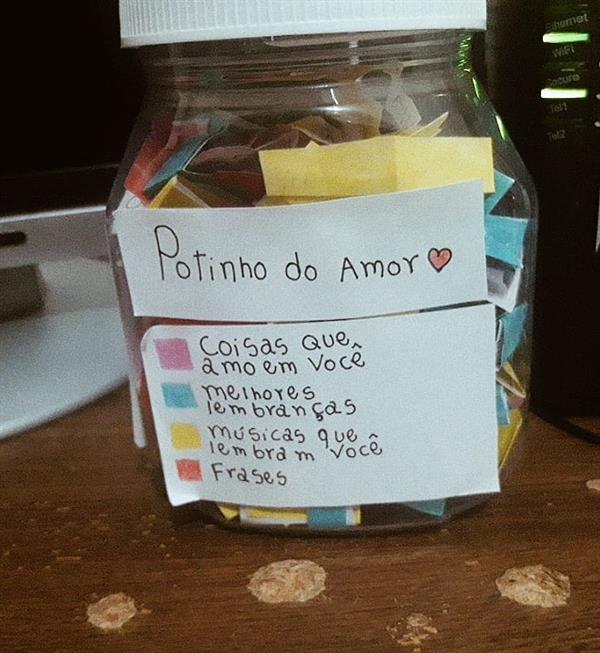 Ethernet
WiFi
Secure
Tel1
Tel2
Potinho do Amor
Coisas que
amo em você
melhores
lembranças
músicas que
lembram você
Frases